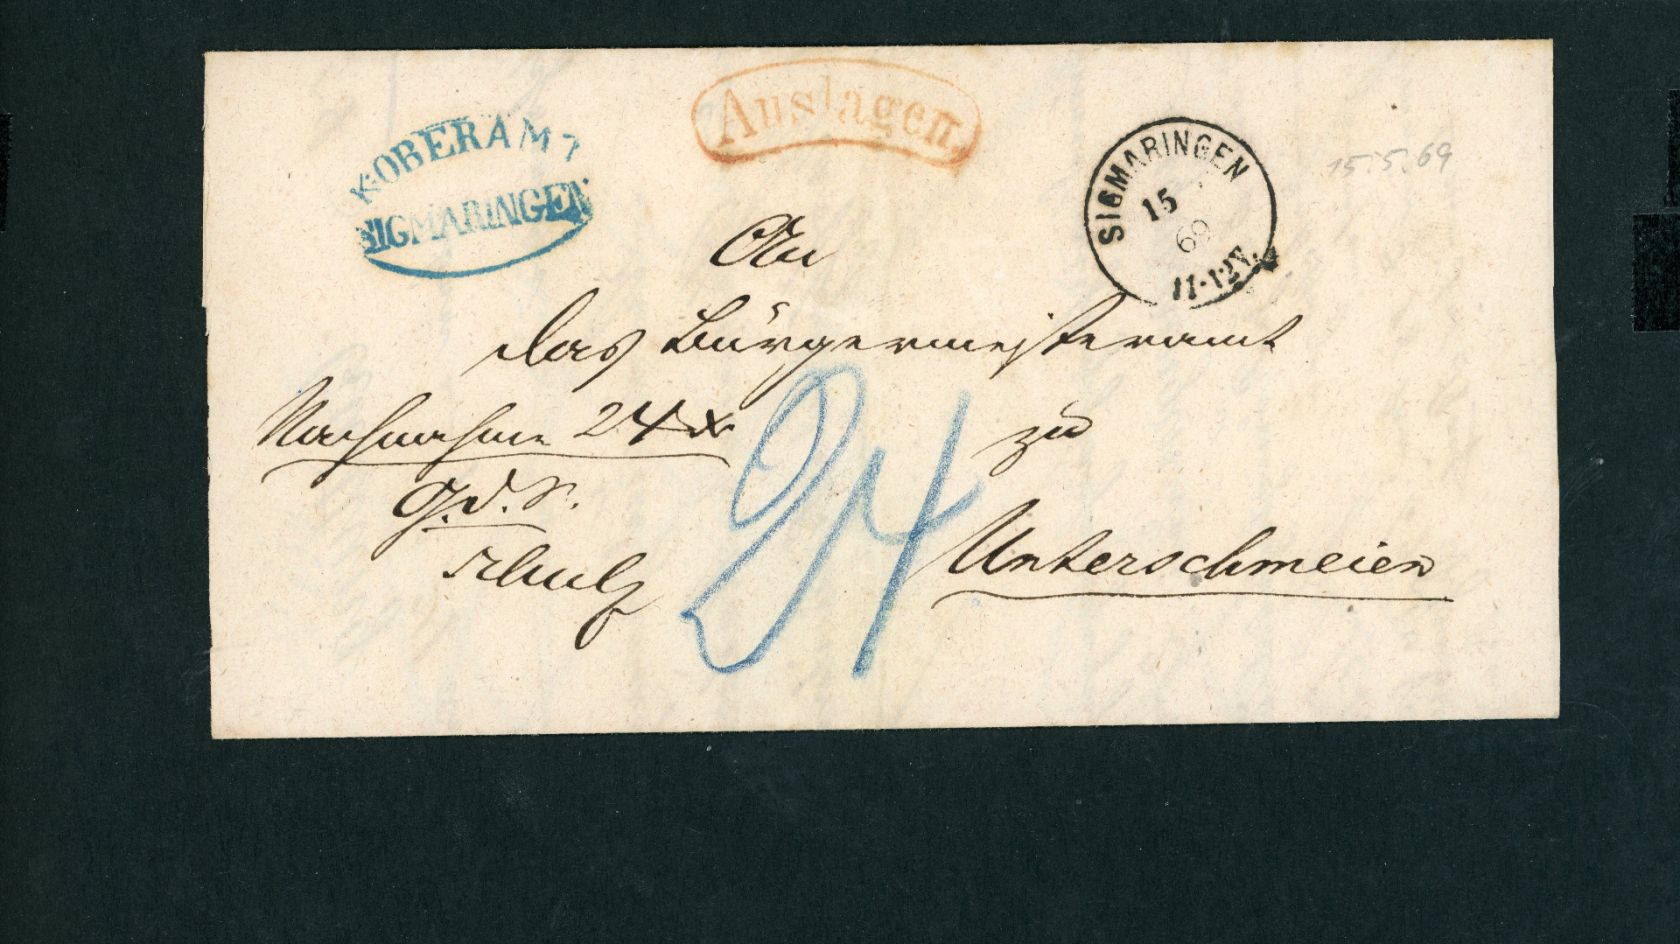 K. OBERAMT
SIGMARINGEN
Auslagen.
SIGMARINGEN
15
69
11-12V.
15.5.69
An
das Bürgermeisteramt
Nachnahme 24 x
zu
Unterschmeien
24